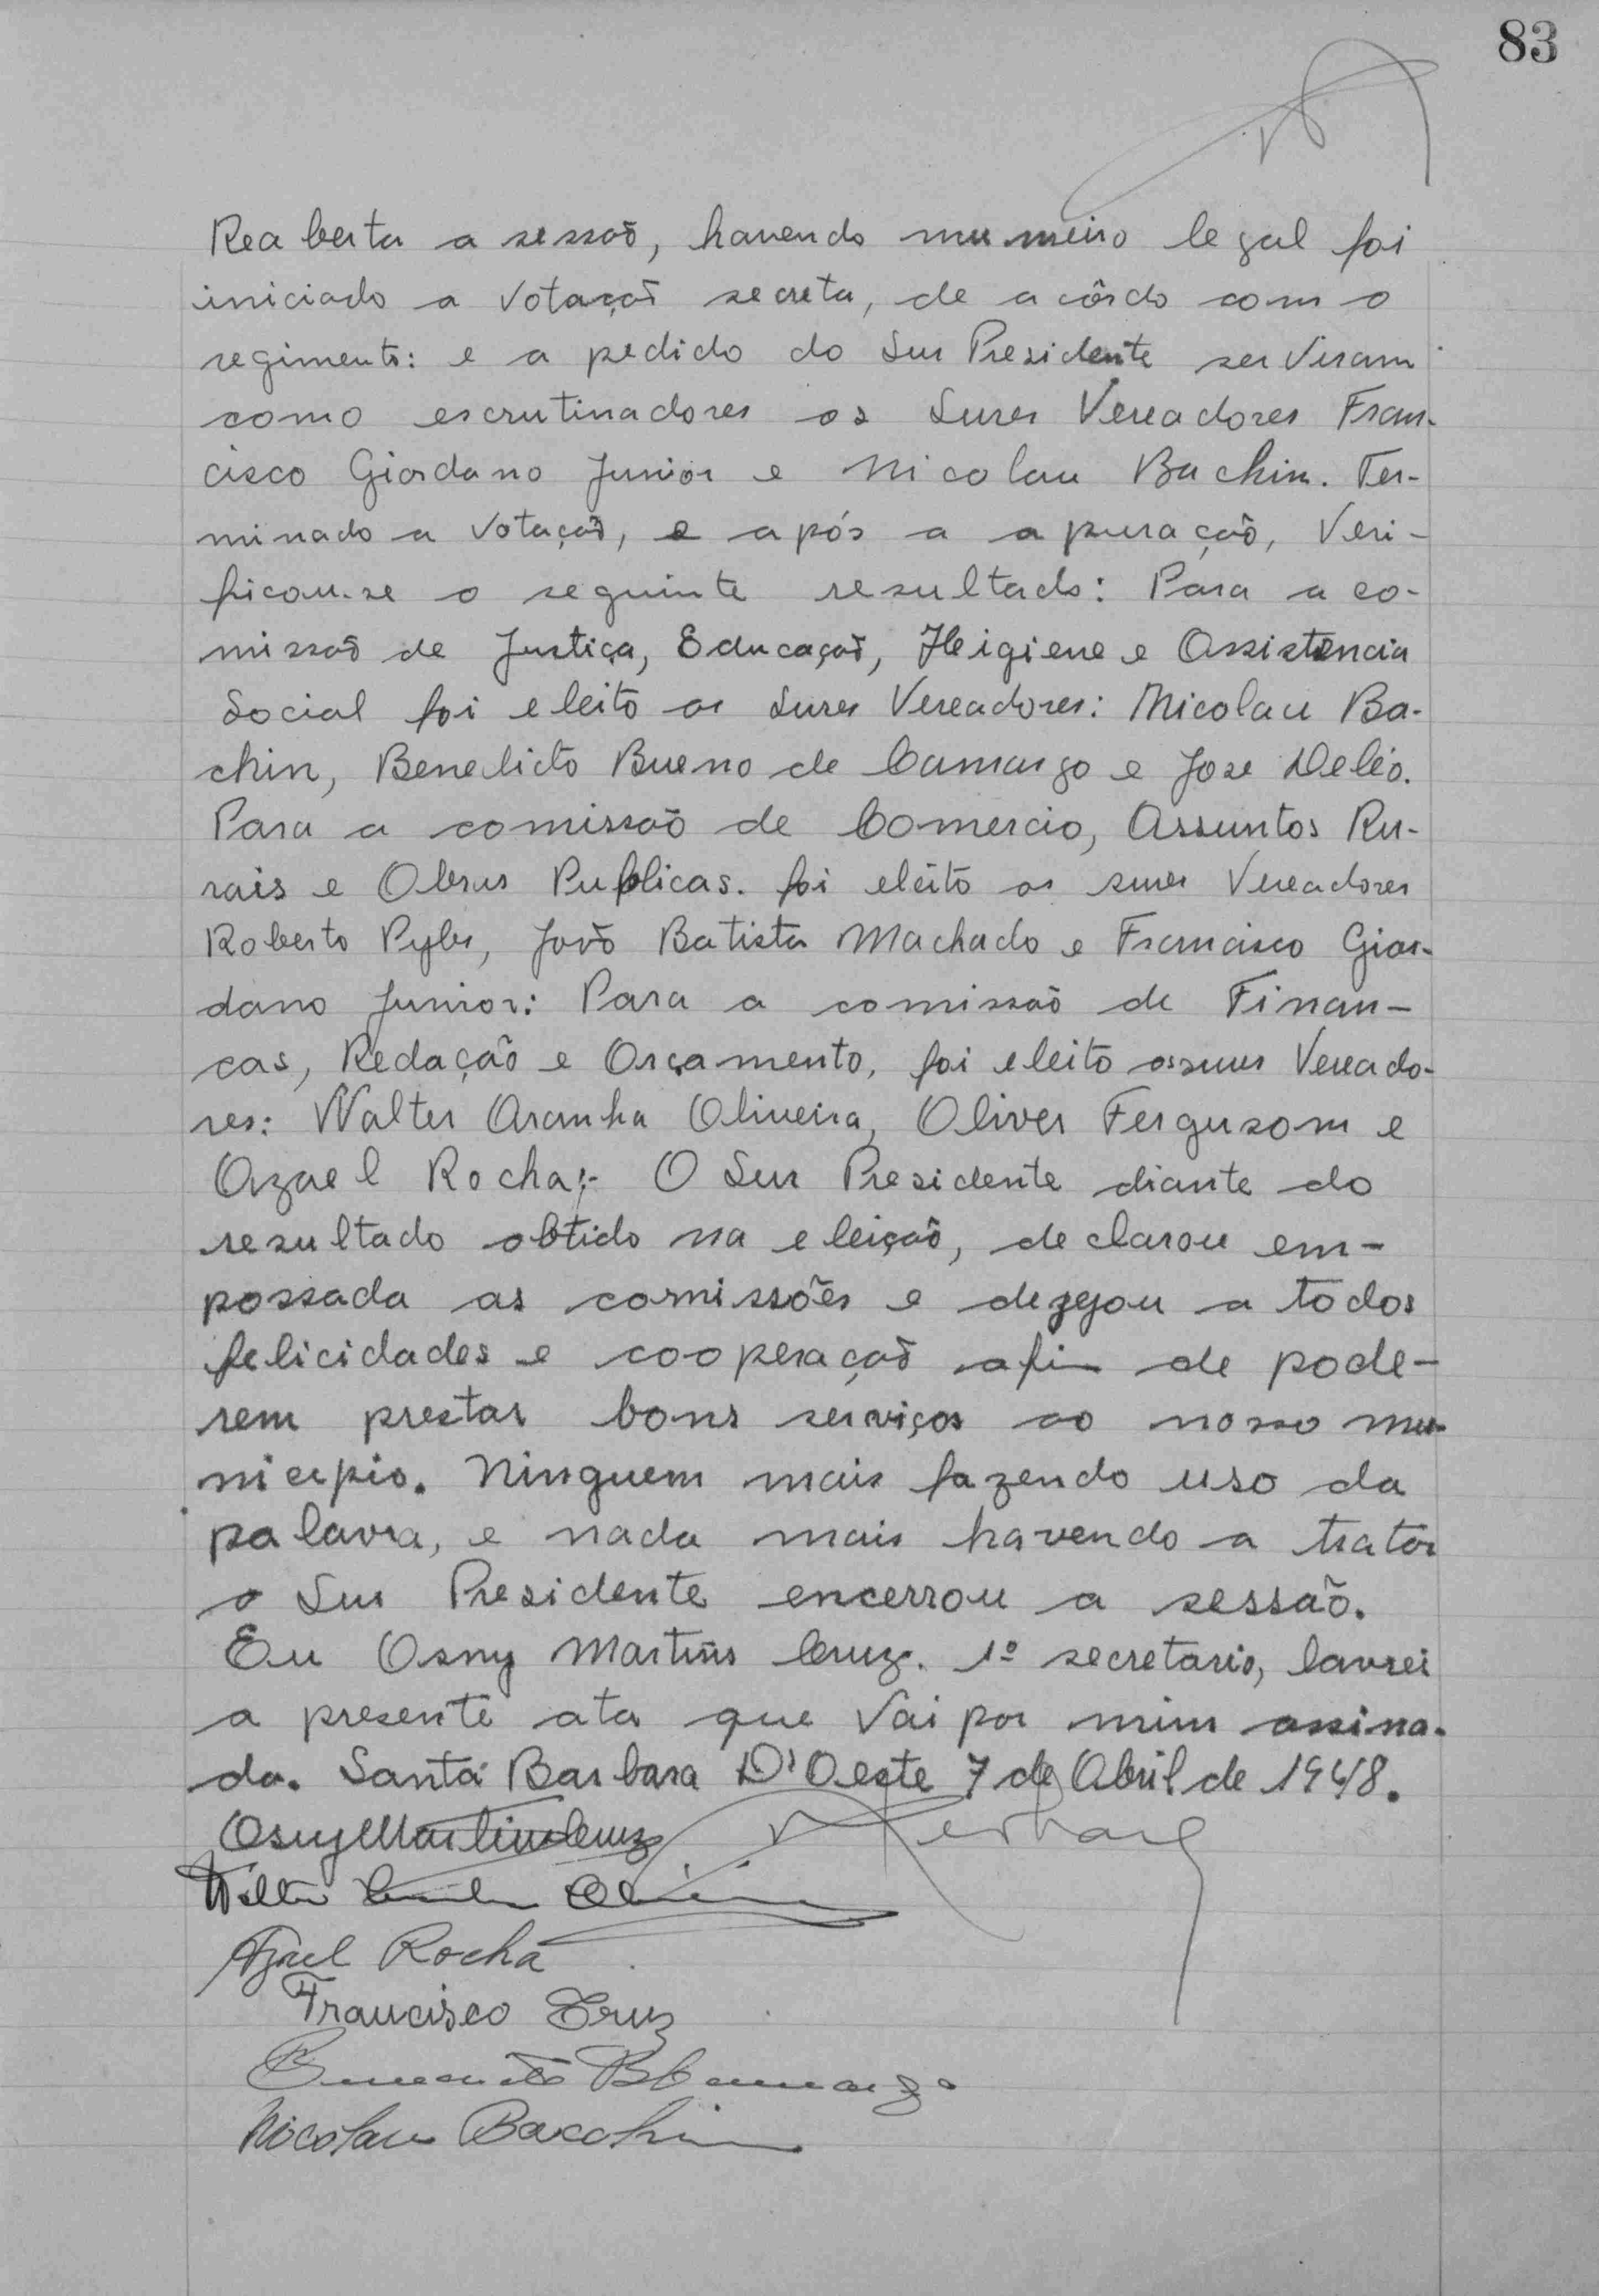 83
Reaberta a sessaõ, havendo numeiro legal foi
iniciado a votaçaõ secreta, de acôrdo com o
regimento: e a pedido do Snr Presidente serviram
como escrutinadores os Snres Vereadores Fran-
cisco Giordano Junior e Nicolau Bachin. Ter-
minado a votaçaõ, e após a apuraçaõ, Veri-
ficou-se o seguinte resultado: Para a co-
missaõ de Justiça, Educaçaõ, Heigiene e Assistencia
Social foi eleito os Snres Vereadores: Nicolau Ba-
chin, Benedicto Bueno de Camargo e Jose Deléo.
Para a comissaõ de Comercio, Assuntos Ru-
rais e Obras Publicas. foi eleito os snres Vereadores
Roberto Pyles, Joaõ Batista Machado e Francisco Gior-
dano Junior: Para a comissaõ de Finan-
cas, Redação e Orçamento, foi eleito os snres Vereado-
res: Walter Aranha Oliveira, Oliver Fergusom e
Azael Rocha;- O Snr Presidente diante do
resultado obtido na eleiçaõ, declarou em-
possada as comissões e dezejou a todos
felicidades e cooperaçaõ afim de pode-
rem prestar bons serviços ao nosso mu-
nicipio. Ninguem mais fazendo uso da
palavra, e nada mais havendo a tratar
o Snr Presidente encerrou a sessão.
Eu Osny Martins Cruz. 1º secretario, lavrei
a presente ata que vai por mim assina-
da. Santa Barbara D'Oeste 7 de Abril de 1948.
Osny Martins Cruz
Walter Aranha Oliveira
Azael Rocha
Francisco Cruz
Benedicto B Camargo
Nicolau Bacchin